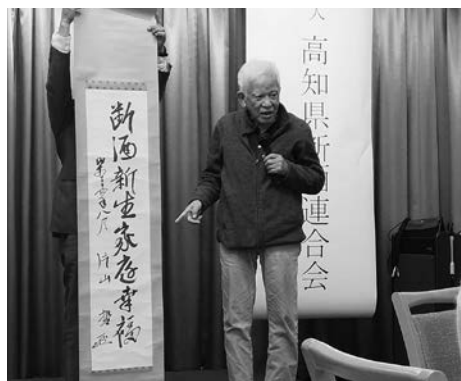 断酒新生家庭幸福
片山
人 高知県断酒連合会